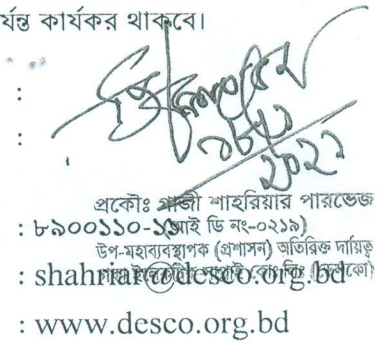 র্যন্ত কার্যকর থাকবে।
:
:
২০২২
প্রকৌঃ গাজী শাহরিয়ার পারভেজ
: ৮৯০০১১০-১১ (আই ডি নং-০২১৯)
উপ-মহাব্যবস্থাপক (প্রশাসন) অতিরিক্ত দায়িত্ব
: shahriar@desco.org.bd
: www.desco.org.bd